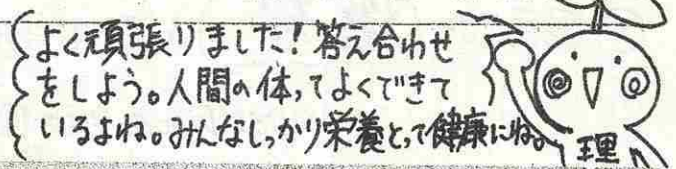 よく頑張りました！答え合わせ
をしよう。人間の体ってよくできて
いるよね。みんなしっかり栄養とって健康にね。
理